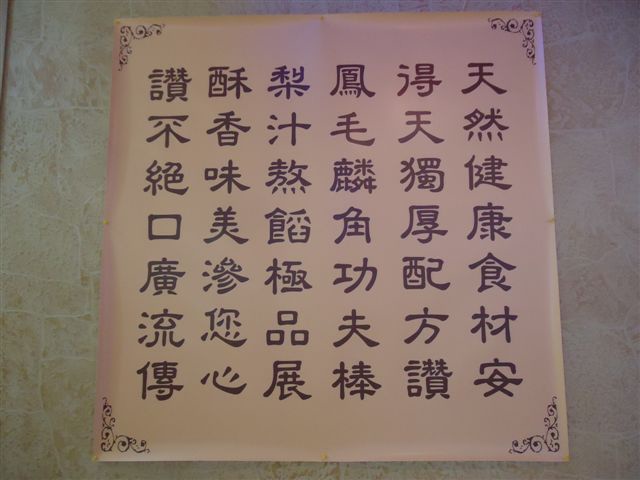 天然健康食材安
得天獨厚配方讚
鳳毛麟角功夫棒
梨汁熬餡極品展
酥香味美滲您心
讚不絕口廣流傳